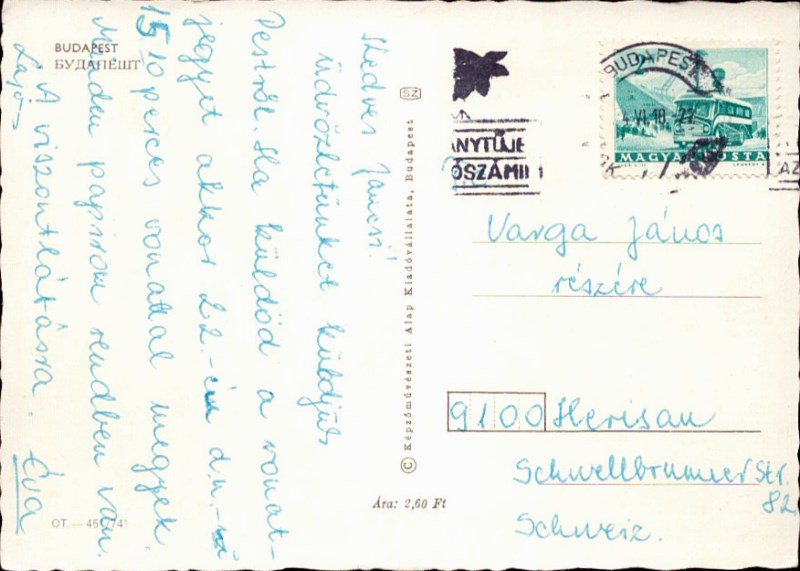 BUDAPEST
БУДАПЕШТ
Kedves Jancsi!
Üdvözletünket küldjük
Pestről. Ha küldöd a vonat-
jegyet akkor 22.-én d.u.-
15 10 perces vonattal megyek.
Minden papirom rendben van.
A viszontlátásra. Éva
Lajos
OT. — 4517/41
Ára: 2,60 Ft
© Képzőművészeti Alap Kiadóvállalata, Budapest
SZ
BUDAPEST
VI.18.-22
MAGYAR POSTA
ANYTŰJE
ÓSZÁMI
AZ
Varga János
részére
9100 Herisau
Schwellbrunner Str.
82.
Schweiz.